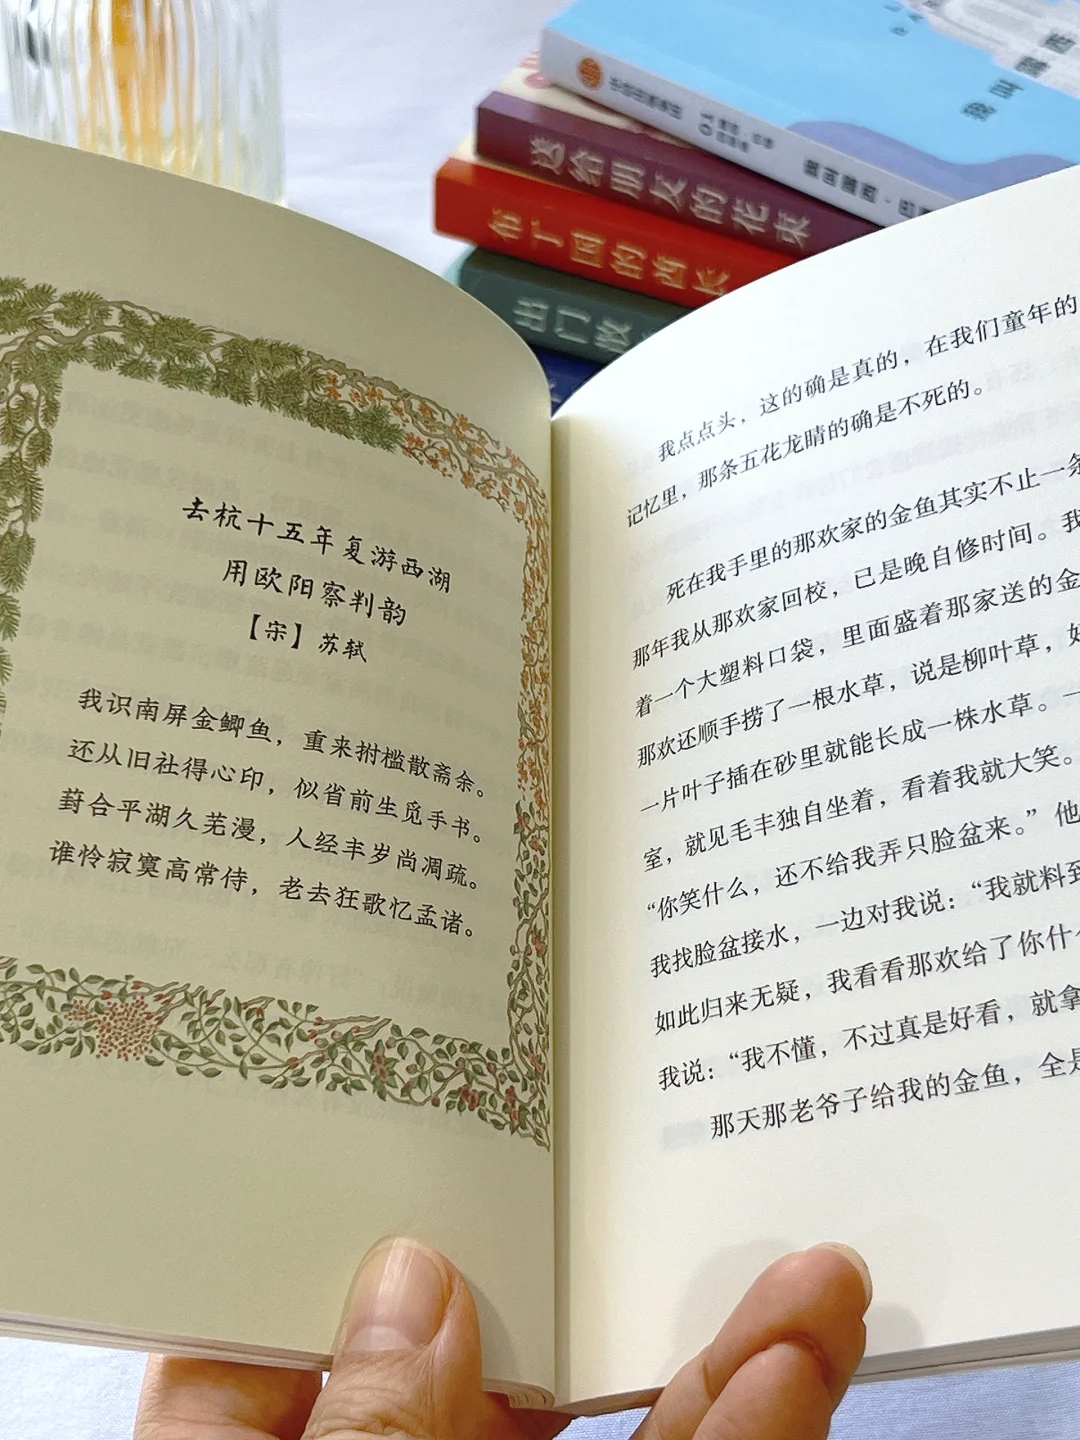 我叫露西
我叫露西·巴
送给朋友的花束
布丁国的酋长
出门散
去杭十五年复游西湖
用欧阳察判韵
【宋】苏轼
我识南屏金鲫鱼，重来拊槛散斋余。
还从旧社得心印，似省前生觅手书。
葑合平湖久芜漫，人经丰岁尚凋疏。
谁怜寂寞高常侍，老去狂歌忆孟诸。
我点点头，这的确是真的，在我们童年的
记忆里，那条五花龙睛的确是不死的。
死在我手里的那欢家的金鱼其实不止一条
那年我从那欢家回校，已是晚自修时间。我
着一个大塑料口袋，里面盛着那家送的金
那欢还顺手捞了一根水草，说是柳叶草，好
一片叶子插在砂里就能长成一株水草。一
室，就见毛丰独自坐着，看着我就大笑。
“你笑什么，还不给我弄只脸盆来。”他
我找脸盆接水，一边对我说：“我就料到
如此归来无疑，我看看那欢给了你什么
我说：“我不懂，不过真是好看，就拿
那天那老爷子给我的金鱼，全是